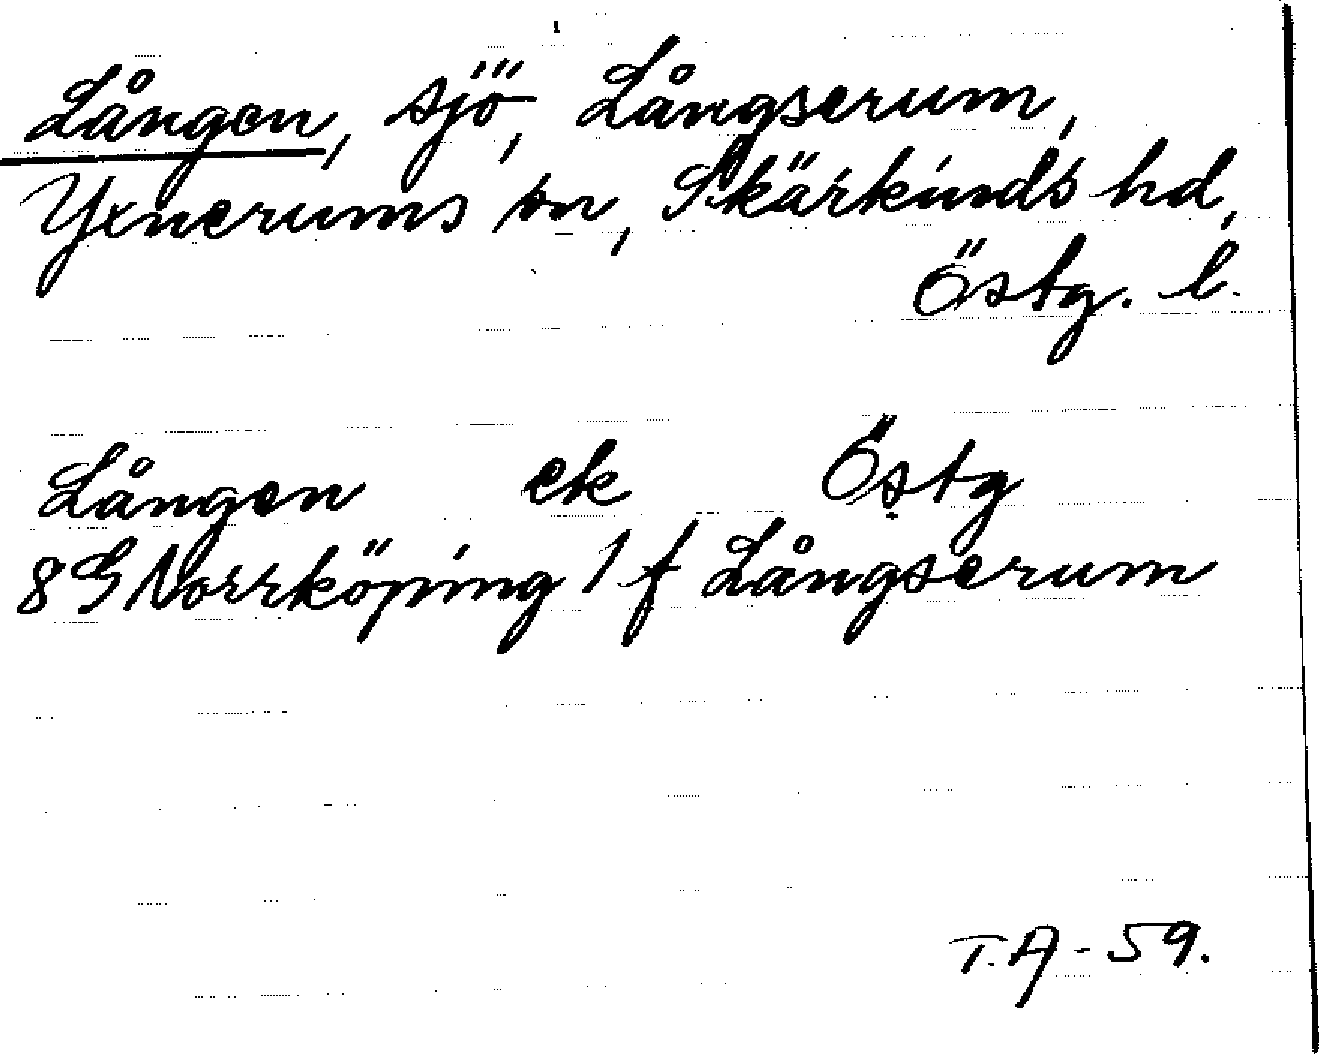 Lången, sjö, Långserum,
Yxnerums sn, Skärkinds hd,
Östg. l.
Lången ek Östg
8G Norrköping 1 f Långserum
T.A - 59.